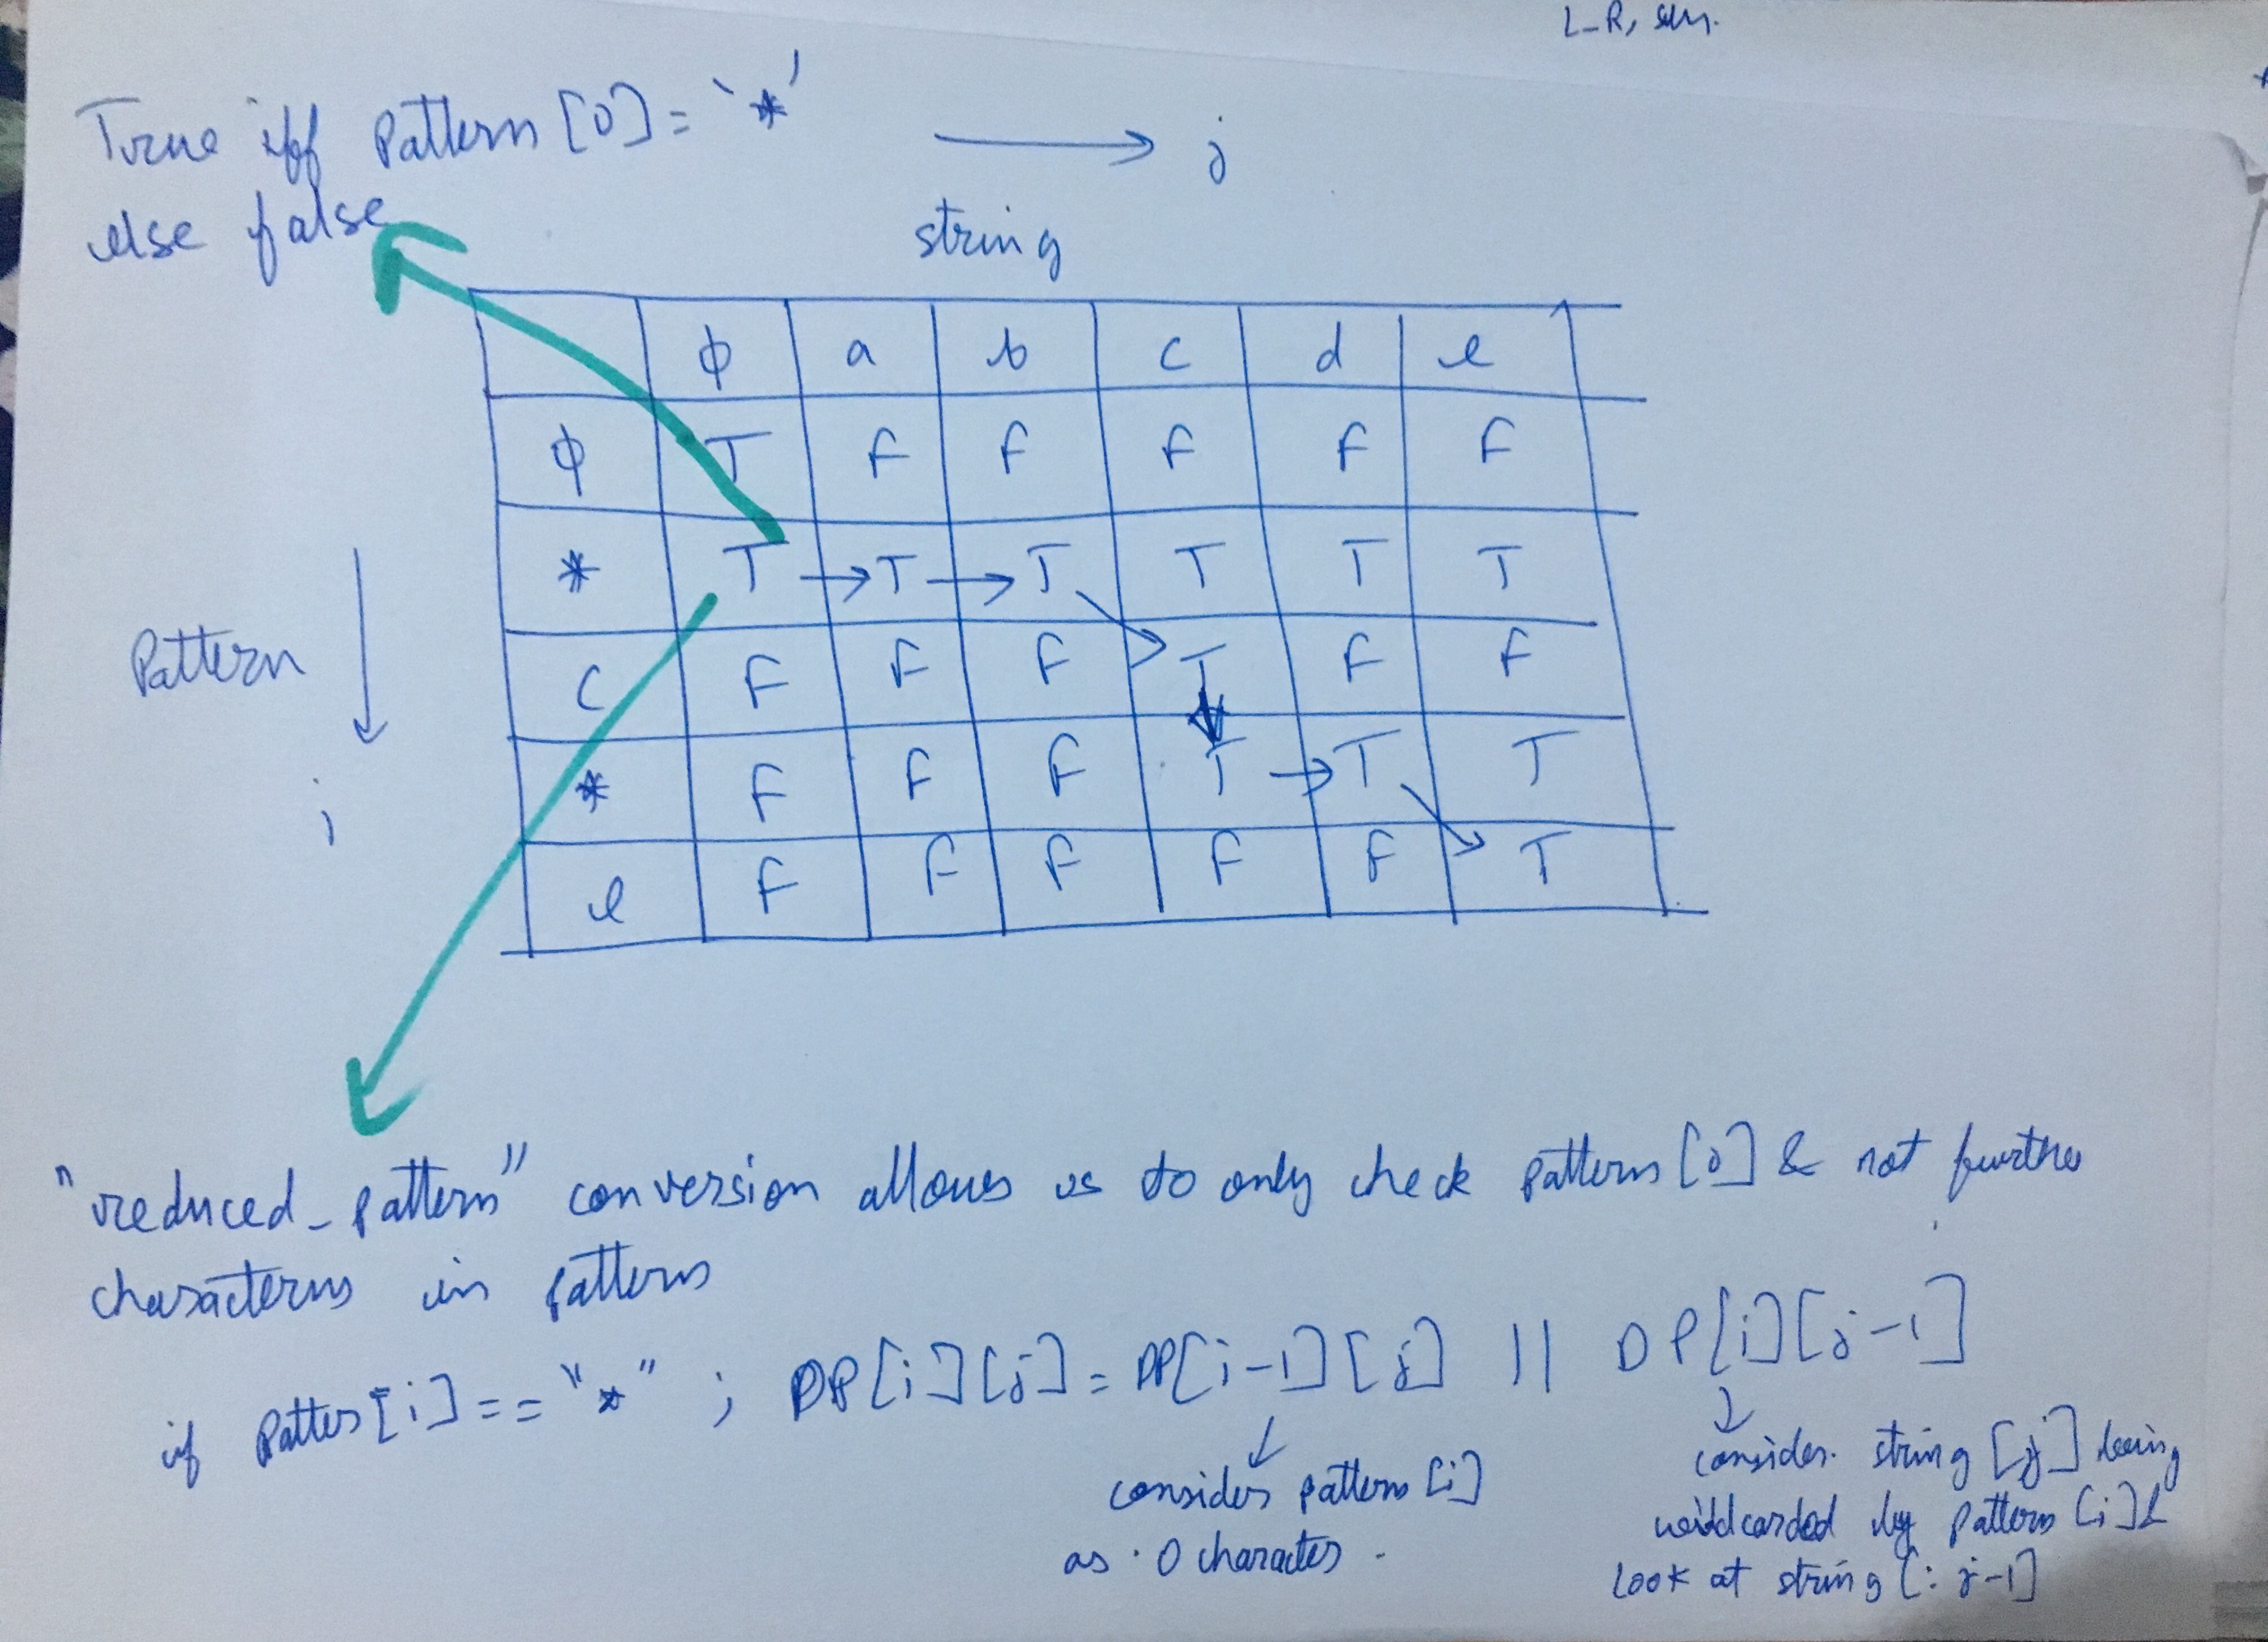 L-R,
True iff Pattern [0] = '*'
else false
→ j
string
ϕ a b c d e
ϕ T F F F F F
* T → T → T T T T
Pattern
C F F F T F F
* F F F T → T T
i
e F F F F F T
"reduced_pattern" conversion allows us to only check pattern [0] & not further
characters in pattern
if Patter[i] == "*" ; DP[i][j] = DP[i-1][j] || DP[i][j-1]
considers pattern [i]
as 0 character.
consider string [j] being
wildcarded by pattern [i] &
Look at string [: j-1]